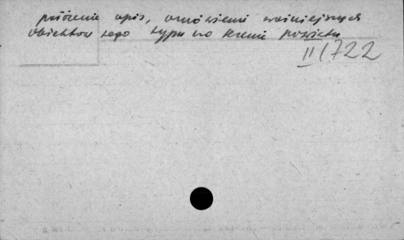 położenie opis, omówienie ważniejszych
obiektów tego typu na terenie powiatu
II/722